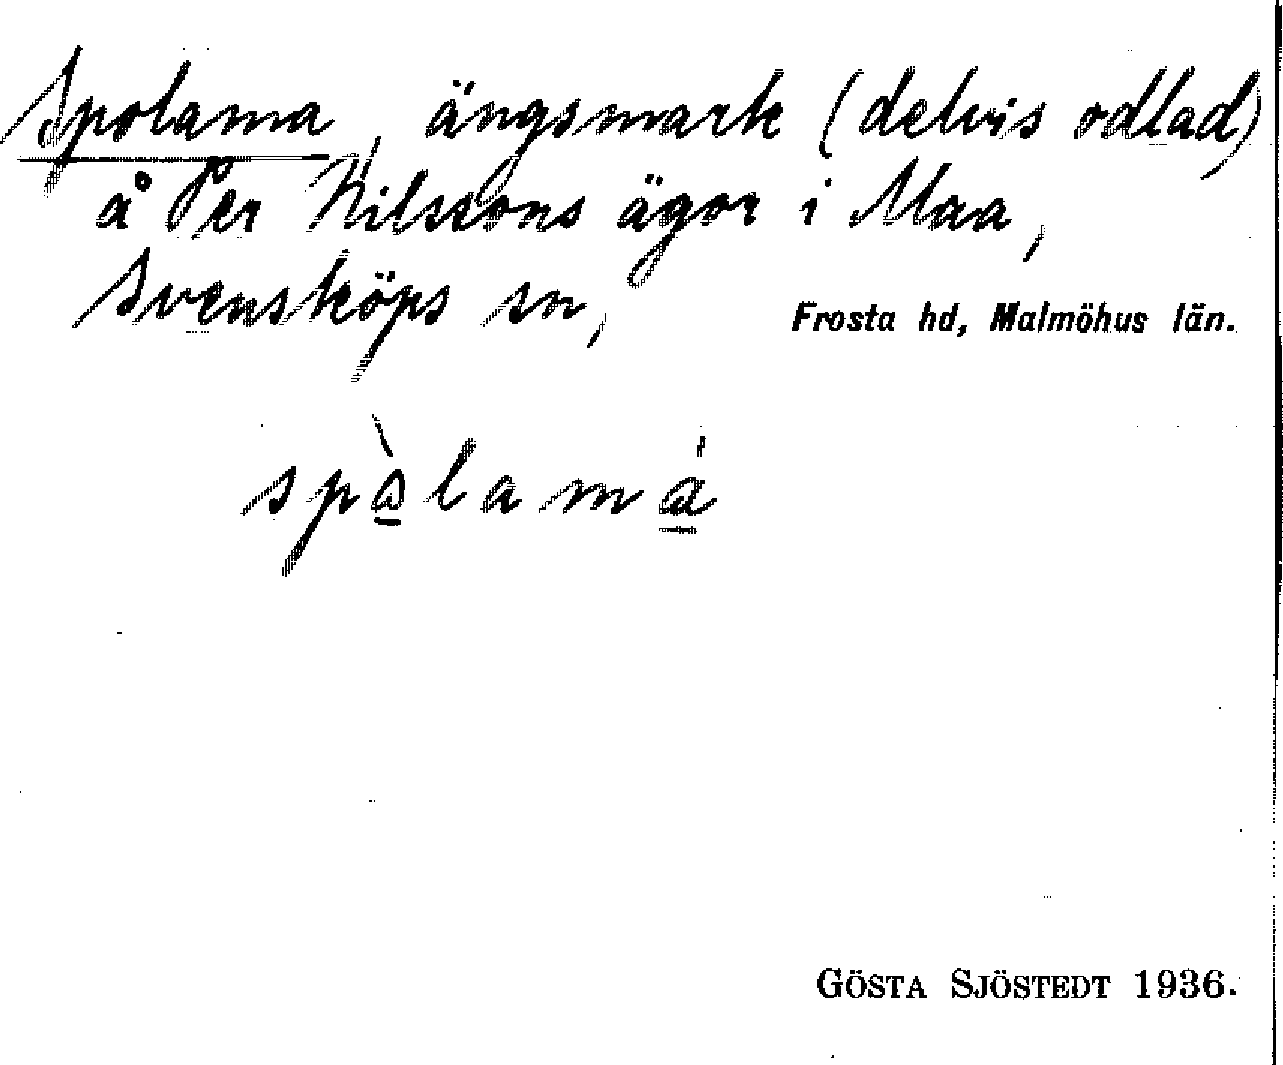 Spolama, ängsmark (delvis odlad)
å Per Nilssons ägor i Maa,
Svensköps sn, Frosta hd, Malmöhus län.
GÖSTA SJÖSTEDT 1936.